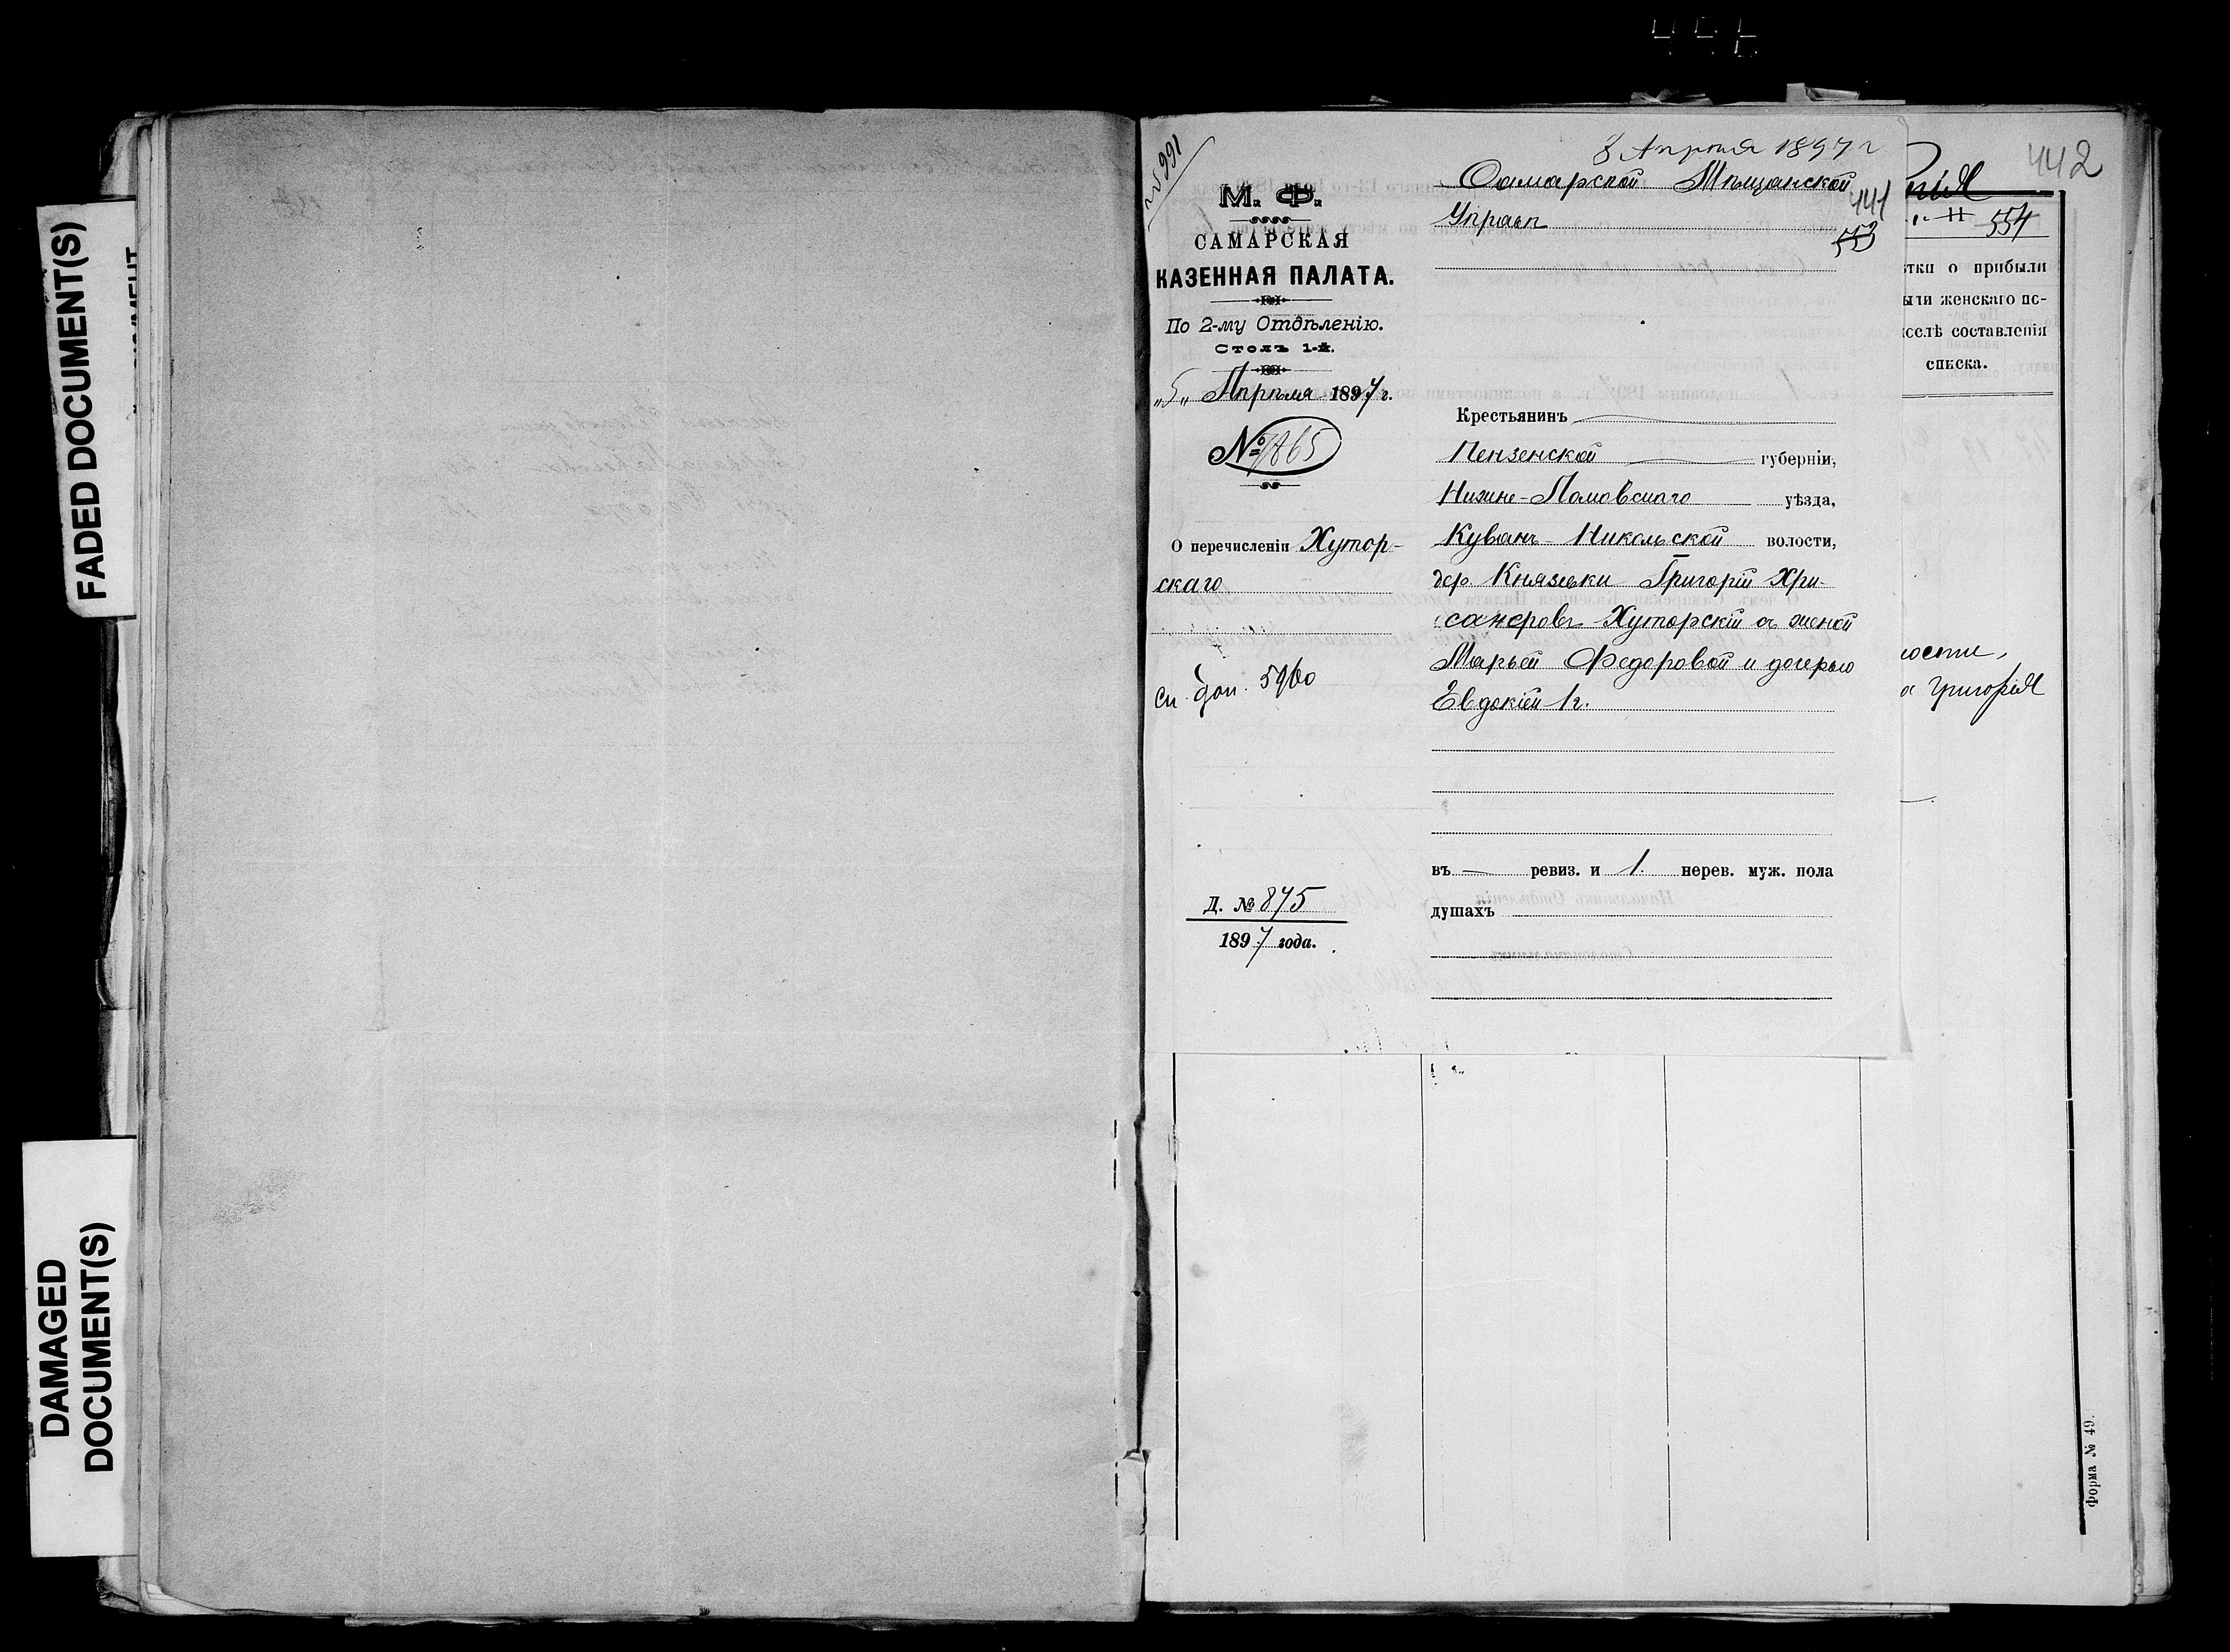 FADED DOCUMENT(S)
DAMAGED
DOCUMENT(S)
№ 991
М. Ф.
САМАРСКАЯ
КАЗЕННАЯ ПАЛАТА.
По 2-му Отдѣленію.
Столъ 1-й.
„5„ Апрѣля 1897 г.
№ 7865
О перечисленіи Хутор-
скаго
Сп. доп. 5960
Д. № 875
1897 года.
8 Апрѣля 1897 г
Самарской Мѣщанской
Управѣ
441
553
Крестьянинъ
Пензенской губерніи,
Нижне-Ломовскаго уѣзда,
Кувакъ-Никольской волости,
дер. Князевки Григорій Хри-
санфровъ Хуторскій съ женой
Марьей Федоровой и дочерью
Евдокіей 1 г.
въ — ревиз. и 1. нерев. муж. пола
душахъ
442
554
тки о прибыли
ыли женскаго по-
слѣ составленія
списка.
ости,
а Григорія
Форма № 49.